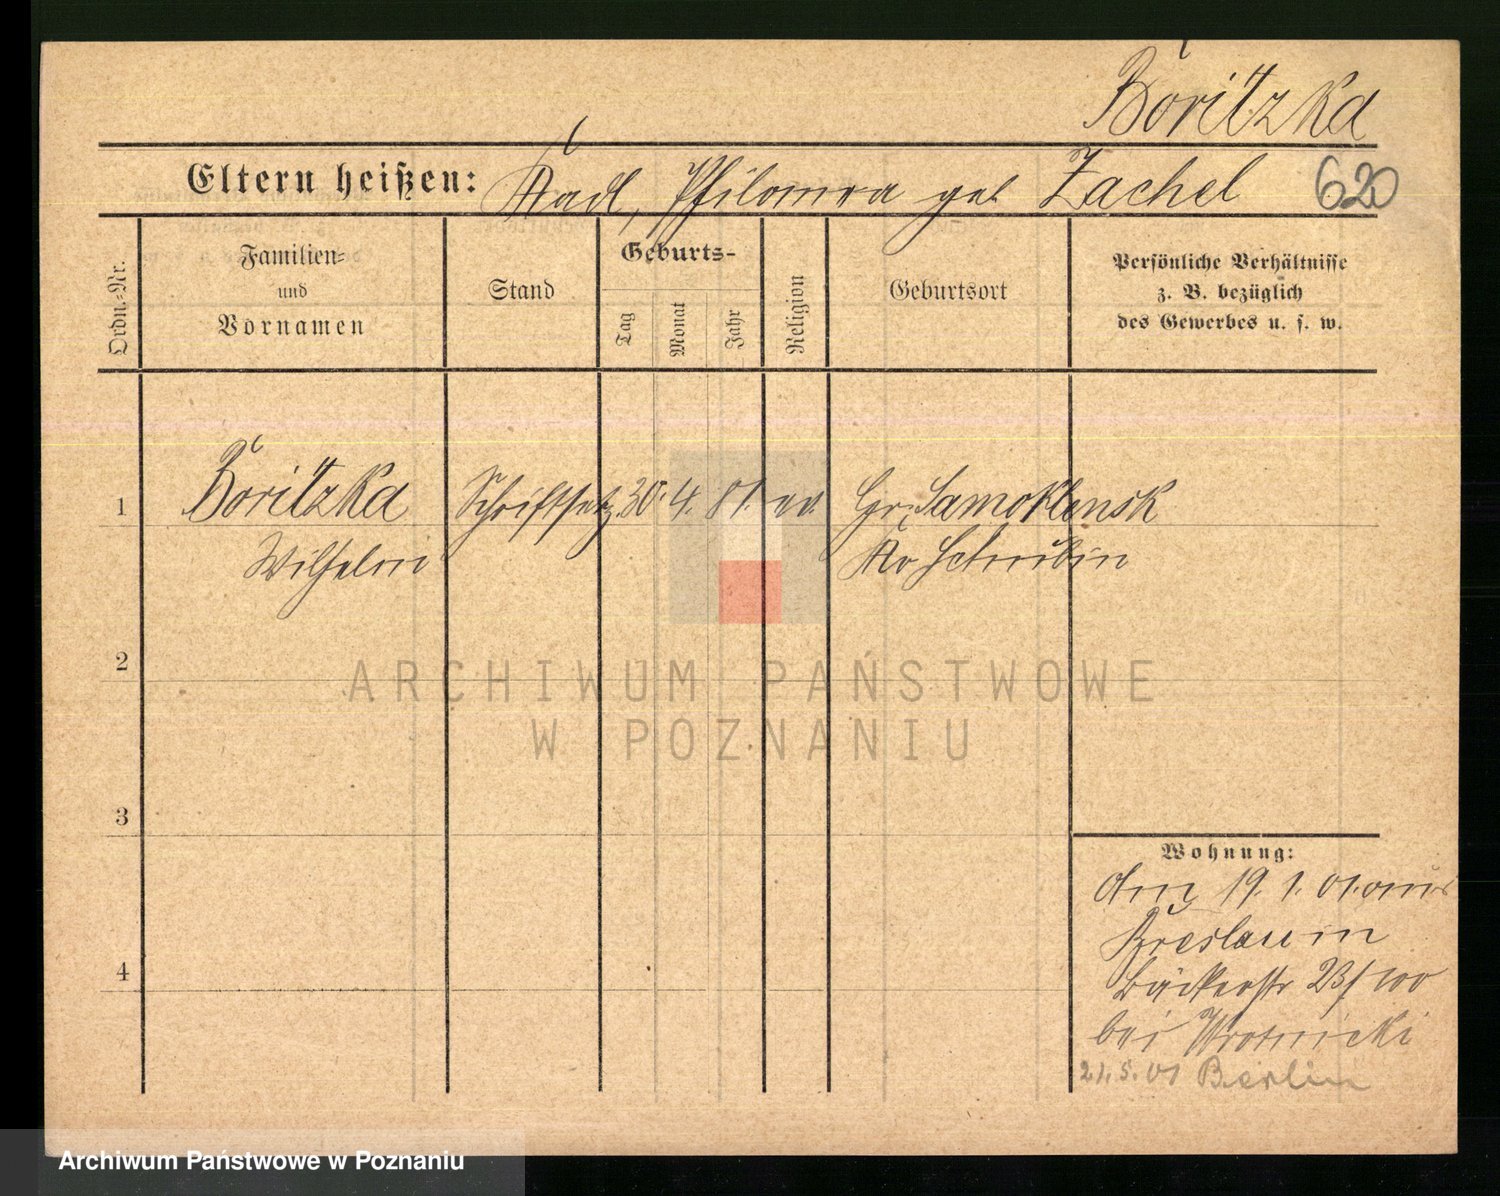 Böritzka
Eltern heißen: Karl, Philomena geb Zachel 620
Ordn.-Nr.
Familien-
und
Vornamen
Stand
Geburts-
Tag
Monat
Jahr
Religion
Geburtsort
Persönliche Verhältnisse
z. B. bezüglich
des Gewerbes u. s. w.
1 Böritzka Schriftsetz. 30. 4. 81. ev. Gr. Samoklensk
Wilhelm Kr Schubin
2
ARCHIWUM PAŃSTWOWE
W POZNANIU
3
Wohnung:
Am 19. 1. 01. aus
Breslau in
4
Bäckerstr 23/
bei Wrotnicki
21. 5. 01 Berlin
Archiwum Państwowe w Poznaniu